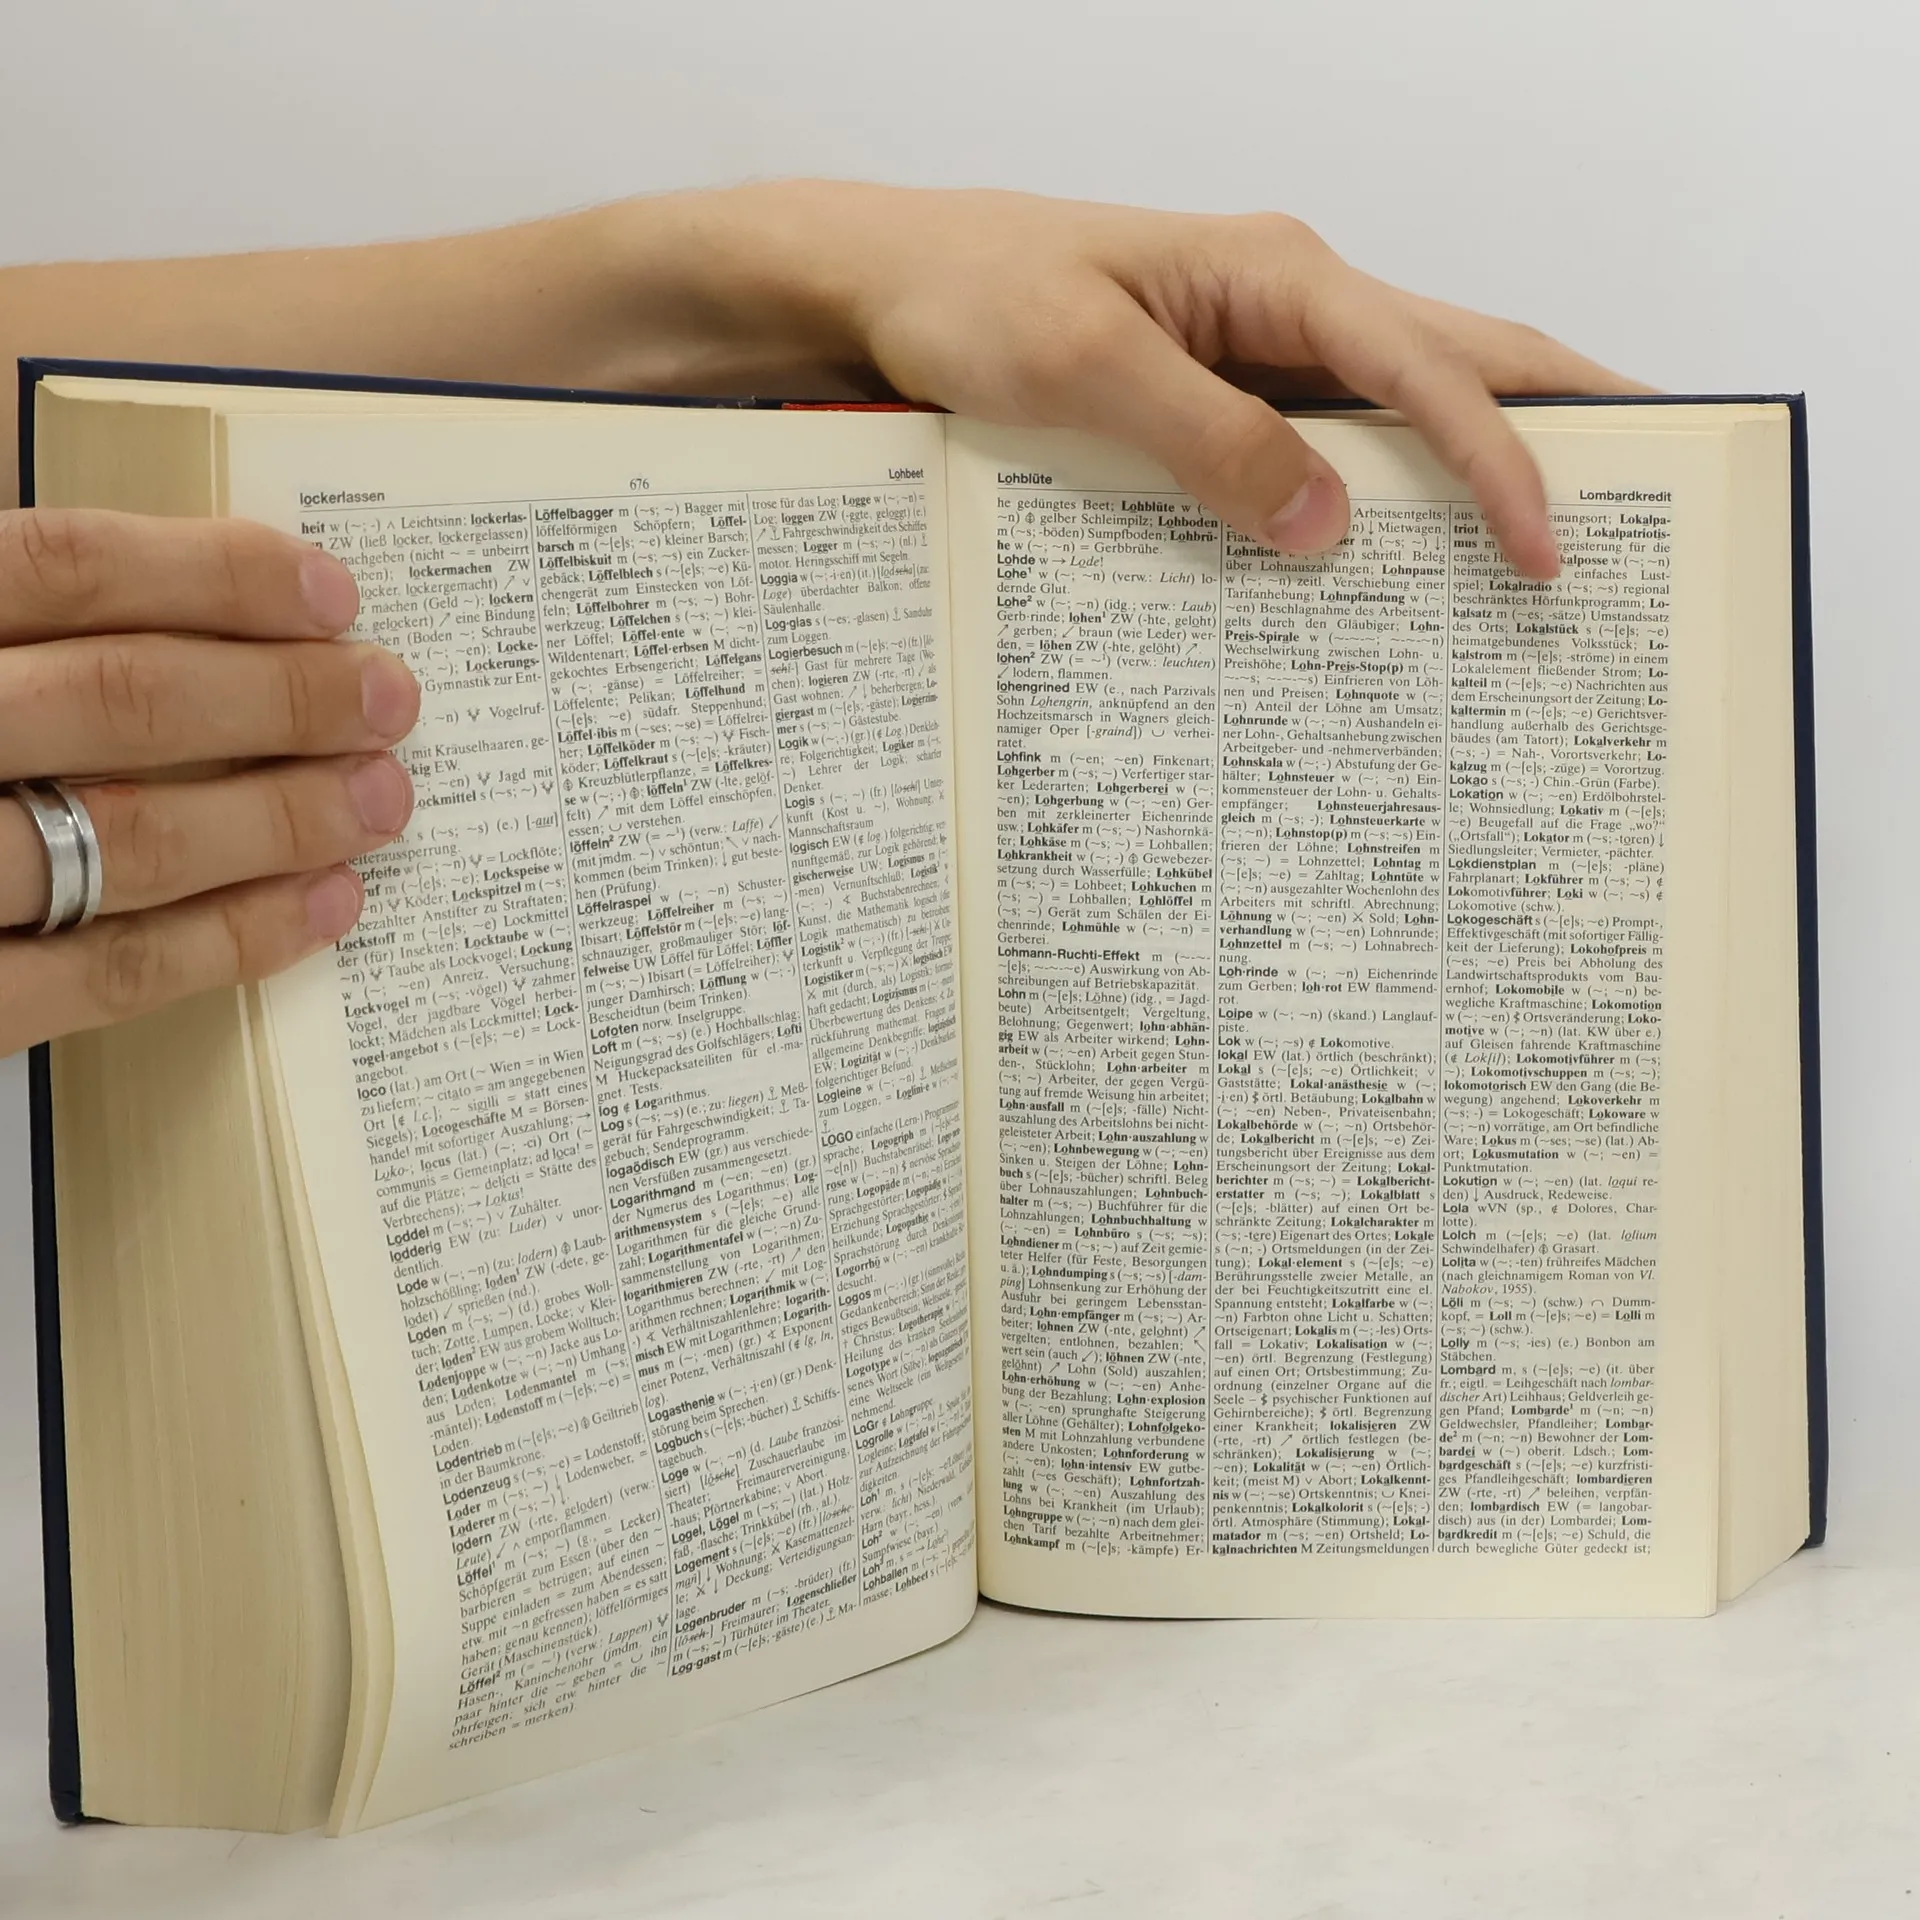 lockerlassen
676
Lohbeet
heit w (~; -) ∧ Leichtsinn; lockerlas-
ZW (ließ locker, lockergelassen)
nachgeben (nicht ~ = unbeirrt
lockermachen ZW
locker, lockergemacht) ↗ v
machen (Geld ~); lockern
gelockert) ↗ eine Bindung
(Boden ~; Schraube
w (~; ~en); Locke-
~); Lockerungs-
Gymnastik zur Ent-
~n) Vogelruf-
mit Kräuselhaaren, ge-
EW.
~en) Jagd mit
ockmittel s (~s; ~)
s (~s; ~s) (e.) [-aut]
beiterausssperrung.
pfeife w (~; ~n) = Lockflöte;
ruf m (~[e]s; ~e); Lockspeise w
~n) Köder; Lockspitzel m (~s;
bezahlter Anstifter zu Straftaten;
Lockstoff m (~[e]s; ~e) Lockmittel
der (für) Insekten; Locktaube w (~;
~n) Taube als Lockvogel; Lockung
w (~; ~en) Anreiz, Versuchung;
Lockvogel m (~s; -vögel) zahmer
Vogel, der jagdbare Vögel herbei-
lockt; Mädchen als Lockmittel; Lock-
vogel·angebot s (~[e]s; ~e) = Lock-
angebot.
loco (lat.) am Ort (~ Wien = in Wien
zu liefern; ~ citato = am angegebenen
Ort [¢ l.c.]; ~ sigilli = statt eines
Siegels); Locogeschäfte M = Börsen-
handel mit sofortiger Auszahlung; →
Loko-; locus (lat.) (~; -ci) Ort (~
communis = Gemeinplatz; ad loca! =
auf die Plätze; ~ delicti = Stätte des
Verbrechens); → Lokus!
Loddel m (~s; ~) v Zuhälter.
lodderig EW (zu: Luder) v unor-
dentlich.
Lode w (~; ~n) (zu: lodern) Laub-
holzschößling; loden¹ ZW (-dete, ge-
lodet) ↙ sprießen (nd.).
Loden m (~s; ~) (d.) grobes Woll-
tuch; Zotte, Lumpen, Locke; v Klei-
der; loden² EW aus grobem Wolltuch;
Lodenjoppe w (~; ~n) Jacke aus Lo-
den; Lodenkotze w (~; ~n) Umhang
aus Loden; Lodenmantel m (~s;
-mäntel); Lodenstoff m (~[e]s; ~e) =
Loden.
Lodentrieb m (~[e]s; ~e) Geiltrieb
in der Baumkrone.
Lodenzeug s (~s; ~e) = Lodenstoff;
Loder m (~s; ~) ↓ Lodenweber, =
Loderer m (~s; ~) ↓.
lodern ZW (-rte, gelodert) (verw.:
Leute) ↙ ∧ emporflammen.
Löffel¹ m (~s; ~) (g., = Lecker)
Schöpfgerät zum Essen (über den ~
barbieren = betrügen; auf einen ~
Suppe einladen = zum Abendessen;
etw. mit ~n gefressen haben = es satt
haben; genau kennen); löffelförmiges
Gerät (Maschinenstück).
Löffel² m (= ~¹) (verw.: Lappen)
Hasen-, Kaninchenohr (jmdm. ein
paar hinter die ~ geben = ∪ ihn
ohrfeigen; sich etw. hinter die ~
schreiben = merken)
Löffelbagger m (~s; ~) Bagger mit
löffelförmigen Schöpfern; Löffel-
barsch m (~[e]s; ~e) kleiner Barsch;
Löffelbiskuit m (~s; ~s) ein Zucker-
gebäck; Löffelblech s (~[e]s; ~e) Kü-
chengerät zum Einstecken von Löf-
feln; Löffelbohrer m (~s; ~) Bohr-
werkzeug; Löffelchen s (~s; ~) klei-
ner Löffel; Löffel·ente w (~; ~n)
Wildentenart; Löffel·erbsen M dicht-
gekochtes Erbsengericht; Löffelgans
w (~; -gänse) = Löffelreiher; =
Löffelente; Pelikan; Löffelhund m
(~[e]s; ~e) südafr. Steppenhund;
Löffel·ibis m (~ses; ~se) = Löffelrei-
her; Löffelköder m (~s; ~) Fisch-
köder; Löffelkraut s (~[e]s; -kräuter)
Kreuzblütlerpflanze, = Löffelkres-
se w (~; -) ; löffeln¹ ZW (-lte, gelöf-
felt) ↗ mit dem Löffel einschöpfen,
essen; ∪ verstehen.
löffeln² ZW (= ~¹) (verw.: Laffe) ↙
(mit jmdm. ~) v schöntun; ↖ v nach-
kommen (beim Trinken); ↓ gut beste-
hen (Prüfung).
Löffelraspel w (~; ~n) Schuster-
werkzeug; Löffelreiher m (~s; ~)
Ibisart; Löffelstör m (~[e]s; ~e) lang-
schnauziger, großmauliger Stör; löf-
felweise UW Löffel für Löffel; Löffler
m (~s; ~) Ibisart (= Löffelreiher);
junger Damhirsch; Löfflung w (~; -)
Bescheidtun (beim Trinken).
Lofoten norw. Inselgruppe.
Loft m (~s; ~s) (e.) Hochballschlag;
Neigungsgrad des Golfschlägers; Lofti
M Huckepacksateiliten für el.-ma-
gnet. Tests.
log ¢ Logarithmus.
Log s (~s; ~s) (e.; zu: liegen) Meß-
gerät für Fahrgeschwindigkeit; Ta-
gebuch; Sendeprogramm.
logaödisch EW (gr.) aus verschiede-
nen Versfüßen zusammengesetzt.
Logarithmand m (~en; ~en) (gr.)
der Numerus des Logarithmus; Log-
arithmensystem s (~[e]s; ~e) alle
Logarithmen für die gleiche Grund-
zahl; Logarithmentafel w (~; ~n) Zu-
sammenstellung von Logarithmen;
logarithmieren ZW (-rte, -rt) ↗ den
Logarithmus berechnen; ↙ mit Log-
arithmen rechnen; Logarithmik w (~;
-) ∢ Verhältniszahlenlehre; logarith-
misch EW mit Logarithmen; Logarith-
mus m (~; -men) (gr.) ∢ Exponent
einer Potenz, Verhältniszahl (¢ lg, ln,
log).
Logasthenie w (~; -j·en) (gr.) Denk-
störung beim Sprechen.
Logbuch s (~[e]s; -bücher) Schiffs-
tagebuch.
Loge w (~; ~n) (d. Laube französi-
siert) [lōsche] Zuschauerlaube im
Theater; Freimaurervereinigung,
-haus; Pförtnerkabine; v Abort.
Logel, Lögel m (~s; ~) (lat.) Holz-
faß, -flasche; Trinkkübel (rh., al.).
Logement s (~[e]s; ~e) (fr.) [losche-
maŋ] ↓ Wohnung; Kasemattenzel-
le; ↓ Deckung; Verteidigungsan-
lage
Logenbruder m (~s; -brüder) (fr.)
[lōsch-] Freimaurer; Logenschließer
m (~s; ~) Türhüter im Theater.
Log·gast m (~[e]s; -gäste) (e.) Ma-
trose für das Log; Logge w (~; ~n) =
Log; loggen ZW (-ggte, geloggt) (e.)
Fahrgeschwindigkeit des Schiffes
messen; Logger m (~s; ~) (nl.)
motor. Heringsschiff mit Segeln.
Loggia w (~; -i·en) (it.) [lodscha] (zu:
Loge) überdachter Balkon; offene
Säulenhalle.
Log·glas s (~es; -gläsen) Sanduhr
zum Loggen.
Logierbesuch m (~[e]s; ~e) (fr.) [lo-
schi-] Gast für mehrere Tage (Wo-
chen); logieren ZW (-rte, -rt) ↙ als
Gast wohnen; ↗ ↓ beherbergen; Lo-
giergast m (~[e]s, -gäste); Logierzim-
mer s (~s; ~) Gästestube.
Logik w (~; -) (gr.) (¢ Log.) Denkleh-
re, Folgerichtigkeit; Logiker m (~s;
~) Lehrer der Logik; scharfer
Denker.
Logis s (~, ~) (fr.) [loschi] Unter-
kunft (Kost u. ~), Wohnung;
Mannschaftsraum
logisch EW (¢ log.) folgerichtig; ver-
nunftgemäß, zur Logik gehörend; lo-
gischerweise UW; Logismus m (~;
-men) Vernunftschluß; Logistik¹ w
(~; -) ∢ Buchstabenrechnen;
Kunst, die Mathematik logisch (die
Logik mathematisch) zu betreiben;
Logistik² w (~; -) (fr.) [-schi-] Un-
terkunft u. Verpflegung der Truppe;
Logistiker m (~s; ~) ; logistisch EW
mit (durch, als) Logistik; formel-
haft gedacht; Logizismus m (~; -men)
Überbewertung des Denkens;
rückführung mathemat. Fragen auf
allgemeine Denkbegriffe; logizistisch
EW; Logizität w (~; -) Denkbarkeit,
folgerichtiger Befund.
Logleine w (~; ~n) Meßschnur
zum Loggen, = Loglini·e w (~; ~n)
LOGO einfache (Lern-) Programmier-
sprache; Logogriph m (~[e]s;
~e[n]) Buchstabenrätsel;
~n) nervöse Sprachstö-
rung; Logopäde m (~n; ~n)
Sprachgestörter; Logopädie
Erziehung Sprachgestörter;
heilkunde; Logopathie w (~; ~n)
Sprachstörung durch Denkstörung
Logorrhö w (~; ~en) krankhafte Re-
desucht.
Logos m (~; -) (gr.) (sinnvolle) Rede;
Gedankenbereich; Sinn der Rede;
stiges Bewußtsein; Weltseele; göttl.
† Christus; Logotherapie w (~;
Heilung des kranken Seelenlebens
Logotype w (~; ~n) als Ganzes gegos-
senes Wort (Silbe);
eine Weltseele (ein Weltgesetz)
nehmend.
LoGr ¢ Lohngruppe.
Logrolle w (~; ~n)
Logleine; Logtafel w (~; ~n)
zur Aufzeichnung der Fahrgeschwin-
digkeiten.
Loh¹ m, s (~[e]s; ~e/Löhe)
verw. licht) Niederwald, Gehölz;
Harn (bayr., hess.).
Loh² w (~; ~en) (verw.
Sumpfwiese (bayr.).
Loh³ m, s = → Lohe².
Lohballen m (~s; ~) gepreßte
masse; Lohbeet s (~[e]s; ~e)
Lohblüte
Lombardkredit
he gedüngtes Beet; Lohblüte w (~;
~n) gelber Schleimpilz; Lohboden
m (~s; -böden) Sumpfboden; Lohbrü-
he w (~; ~n) = Gerbbrühe.
Lohde w → Lode!
Lohe¹ w (~; ~n) (verw.: Licht) lo-
dernde Glut.
Lohe² w (~; ~n) (idg.; verw.: Laub)
Gerb·rinde; lohen¹ ZW (-hte, geloht)
↗ gerben; ↙ braun (wie Leder) wer-
den, = löhen ZW (-hte, gelöht) ↗.
lohen² ZW (= ~¹) (verw.: leuchten)
↙ lodern, flammen.
lohengrined EW (e., nach Parzivals
Sohn Lohengrin, anknüpfend an den
Hochzeitsmarsch in Wagners gleich-
namiger Oper [-graind]) ∪ verhei-
ratet.
Lohfink m (~en; ~en) Finkenart;
Lohgerber m (~s; ~) Verfertiger star-
ker Lederarten; Lohgerberei w (~;
~en); Lohgerbung w (~; ~en) Ger-
ben mit zerkleinerter Eichenrinde
usw.; Lohkäfer m (~s; ~) Nashornkä-
fer; Lohkäse m (~s; ~) = Lohballen;
Lohkrankheit w (~; -) Gewebezer-
setzung durch Wasserfülle; Lohkübel
m (~s; ~) = Lohbeet; Lohkuchen m
(~s; ~) = Lohballen; Lohlöffel m
(~s; ~) Gerät zum Schälen der Ei-
chenrinde; Lohmühle w (~; ~n) =
Gerberei.
Lohmann-Ruchti-Effekt m (~-~-
~[e]s; ~-~-~e) Auswirkung von Ab-
schreibungen auf Betriebskapazität.
Lohn m (~[e]s; Löhne) (idg., = Jagd-
beute) Arbeitsentgelt; Vergeltung,
Belohnung; Gegenwert; lohn·abhän-
gig EW als Arbeiter wirkend; Lohn-
arbeit w (~; ~en) Arbeit gegen Stun-
den-, Stücklohn; Lohn·arbeiter m
(~s; ~) Arbeiter, der gegen Vergü-
tung auf fremde Weisung hin arbeitet;
Lohn·ausfall m (~[e]s; -fälle) Nicht-
auszahlung des Arbeitslohns bei nicht-
geleisteter Arbeit; Lohn·auszahlung w
(~; ~en); Lohnbewegung w (~; ~en)
Sinken u. Steigen der Löhne; Lohn-
buch s (~[e]s; -bücher) schriftl. Beleg
über Lohnauszahlungen; Lohnbuch-
halter m (~s; ~) Buchführer für die
Lohnzahlungen; Lohnbuchhaltung w
(~; ~en) = Lohnbüro s (~s; ~s);
Lohndiener m (~s; ~) auf Zeit gemie-
teter Helfer (für Feste, Besorgungen
u. ä.); Lohndumping s (~s; ~s) [-dam-
ping] Lohnsenkung zur Erhöhung der
Ausfuhr bei geringem Lebensstan-
dard; Lohn·empfänger m (~s; ~) Ar-
beiter; lohnen ZW (-nte, gelohnt) ↗
vergelten; entlohnen, bezahlen; ↖
wert sein (auch ↙); löhnen ZW (-nte,
gelöhnt) ↗ Lohn (Sold) auszahlen;
Lohn·erhöhung w (~; ~en) Anhe-
bung der Bezahlung; Lohn·explosion
w (~; ~en) sprunghafte Steigerung
aller Löhne (Gehälter); Lohnfolgeko-
sten M mit Lohnzahlung verbundene
andere Unkosten; Lohnforderung w
(~; ~en); lohn·intensiv EW gutbe-
zahlt (~es Geschäft); Lohnfortzah-
lung w (~; ~en) Auszahlung des
Lohns bei Krankheit (im Urlaub);
Lohngruppe w (~; ~n) nach dem glei-
chen Tarif bezahlte Arbeitnehmer;
Lohnkampf m (~[e]s; -kämpfe) Er-
Arbeitsentgelts;
↓ Mietwagen,
Fiak m (~s; ~) ↓;
Lohnliste w ~n) schriftl. Beleg
über Lohnauszahlungen; Lohnpause
w (~; ~n) zeitl. Verschiebung einer
Tarifanhebung; Lohnpfändung w (~;
~en) Beschlagnahme des Arbeitsent-
gelts durch den Gläubiger; Lohn-
Preis-Spirale w (~-~-~; ~-~-~n)
Wechselwirkung zwischen Lohn- u.
Preishöhe; Lohn-Preis-Stop(p) m (~-
~-~s; ~-~-~s) Einfrieren von Löh-
nen und Preisen; Lohnquote w (~;
~n) Anteil der Löhne am Umsatz;
Lohnrunde w (~; ~n) Aushandeln ei-
ner Lohn-, Gehaltsanhebung zwischen
Arbeitgeber- und -nehmerverbänden;
Lohnskala w (~; -) Abstufung der Ge-
hälter; Lohnsteuer w (~; ~n) Ein-
kommensteuer der Lohn- u. Gehalts-
empfänger; Lohnsteuerjahresaus-
gleich m (~s; -); Lohnsteuerkarte w
(~; ~n); Lohnstop(p) m (~s; ~s) Ein-
frieren der Löhne; Lohnstreifen m
(~s; ~) = Lohnzettel; Lohntag m
(~[e]s; ~e) = Zahltag; Lohntüte w
(~; ~n) ausgezahlter Wochenlohn des
Arbeiters mit schriftl. Abrechnung;
Löhnung w (~; ~en) Sold; Lohn-
verhandlung w (~; ~en) Lohnrunde;
Lohnzettel m (~s; ~) Lohnabrech-
nung.
Loh·rinde w (~; ~n) Eichenrinde
zum Gerben; loh·rot EW flammend-
rot.
Loipe w (~; ~n) (skand.) Langlauf-
piste.
Lok w (~; ~s) ¢ Lokomotive.
lokal EW (lat.) örtlich (beschränkt);
Lokal s (~[e]s; ~e) Örtlichkeit; v
Gaststätte; Lokal·anästhesie w (~;
-i·en) örtl. Betäubung; Lokalbahn w
(~; ~en) Neben-, Privateisenbahn;
Lokalbehörde w (~; ~n) Ortsbehör-
de; Lokalbericht m (~[e]s; ~e) Zei-
tungsbericht über Ereignisse aus dem
Erscheinungsort der Zeitung; Lokal-
berichter m (~s; ~) = Lokalbericht-
erstatter m (~s; ~); Lokalblatt s
(~[e]s; -blätter) auf einen Ort be-
schränkte Zeitung; Lokalcharakter m
(~s; -tere) Eigenart des Ortes; Lokale
s (~n; -) Ortsmeldungen (in der Zei-
tung); Lokal·element s (~[e]s; ~e)
Berührungsstelle zweier Metalle, an
der bei Feuchtigkeitszutritt eine el.
Spannung entsteht; Lokalfarbe w (~;
~n) Farbton ohne Licht u. Schatten;
Ortseigenart; Lokalis m (~; -les) Orts-
fall = Lokativ; Lokalisation w (~;
~en) örtl. Begrenzung (Festlegung)
auf einen Ort; Ortsbestimmung; Zu-
ordnung (einzelner Organe auf die
Seele – psychischer Funktionen auf
Gehirnbereiche); örtl. Begrenzung
einer Krankheit; lokalisieren ZW
(-rte, -rt) ↗ örtlich festlegen (be-
schränken); Lokalisierung w (~;
~en); Lokalität w (~; ~en) Örtlich-
keit; (meist M) v Abort; Lokalkennt-
nis w (~; ~se) Ortskenntnis; ∪ Knei-
penkenntnis; Lokalkolorit s (~[e]s; -)
örtl. Atmosphäre (Stimmung); Lokal-
matador m (~s; ~en) Ortsheld; Lo-
kalnachrichten M Zeitungsmeldungen
aus einungsort; Lokalpa-
triot ~en); Lokalpatriotis-
mus m egeisterung für die
engste He kalposse w (~; ~n)
heimatgebu einfaches Lust-
spiel; Lokalradio s (~s; ~s) regional
beschränktes Hörfunkprogramm; Lo-
kalsatz m (~es; -sätze) Umstandssatz
des Orts; Lokalstück s (~[e]s; ~e)
heimatgebundenes Volksstück; Lo-
kalstrom m (~[e]s; -ströme) in einem
Lokalelement fließender Strom; Lo-
kalteil m (~[e]s; ~e) Nachrichten aus
dem Erscheinungsort der Zeitung; Lo-
kaltermin m (~[e]s; ~e) Gerichtsver-
handlung außerhalb des Gerichtsge-
bäudes (am Tatort); Lokalverkehr m
(~s; -) = Nah-, Vorortsverkehr; Lo-
kalzug m (~[e]s; -züge) = Vorortzug.
Lokao s (~s; -) Chin.-Grün (Farbe).
Lokation w (~; ~en) Erdölbohrstel-
le; Wohnsiedlung; Lokativ m (~[e]s;
~e) Beugefall auf die Frage „wo?“
(„Ortsfall“); Lokator m (~s; -toren) ↓
Siedlungsleiter; Vermieter, -pächter.
Lokdienstplan m (~[e]s; -pläne)
Fahrplanart; Lokführer m (~s; ~) ¢
Lokomotivführer; Loki w (~; ~s) ¢
Lokomotive (schw.).
Lokogeschäft s (~[e]s; ~e) Prompt-,
Effektivgeschäft (mit sofortiger Fällig-
keit der Lieferung); Lokohofpreis m
(~es; ~e) Preis bei Abholung des
Landwirtschaftsprodukts vom Bau-
ernhof; Lokomobile w (~; ~n) be-
wegliche Kraftmaschine; Lokomotion
w (~; ~en) Ortsveränderung; Loko-
motive w (~; ~n) (lat. KW über e.)
auf Gleisen fahrende Kraftmaschine
(¢ Lok[i]); Lokomotivführer m (~s;
~); Lokomotivschuppen m (~s; ~);
lokomotorisch EW den Gang (die Be-
wegung) angehend; Lokoverkehr m
(~s; -) = Lokogeschäft; Lokoware w
(~; ~n) vorrätige, am Ort befindliche
Ware; Lokus m (~ses; ~se) (lat.) Ab-
ort; Lokusmutation w (~; ~en) =
Punktmutation.
Lokution w (~; ~en) (lat. loqui re-
den) ↓ Ausdruck, Redeweise.
Lola wVN (sp., ¢ Dolores, Char-
lotte).
Lolch m (~[e]s; ~e) (lat. lolium
Schwindelhafer) Grasart.
Lolita w (~; -ten) frühreifes Mädchen
(nach gleichnamigem Roman von Vl.
Nabokov, 1955).
Löli m (~s; ~) (schw.) ∩ Dumm-
kopf, = Loll m (~[e]s; ~e) = Lolli m
(~s; ~) (schw.).
Lolly m (~s; -ies) (e.) Bonbon am
Stäbchen.
Lombard m, s (~[e]s; ~e) (it. über
fr.; eigtl. = Leihgeschäft nach lombar-
discher Art) Leihhaus; Geldverleih ge-
gen Pfand; Lombarde¹ m (~n; ~n)
Geldwechsler, Pfandleiher; Lombar-
de² m (~n; ~n) Bewohner der Lom-
bardei w (~) oberit. Ldsch.; Lom-
bardgeschäft s (~[e]s; ~e) kurzfristi-
ges Pfandleihgeschäft; lombardieren
ZW (-rte, -rt) ↗ beleihen, verpfän-
den; lombardisch EW (= langobar-
disch) aus (in der) Lombardei; Lom-
bardkredit m (~[e]s; ~e) Schuld, die
durch bewegliche Güter gedeckt ist;